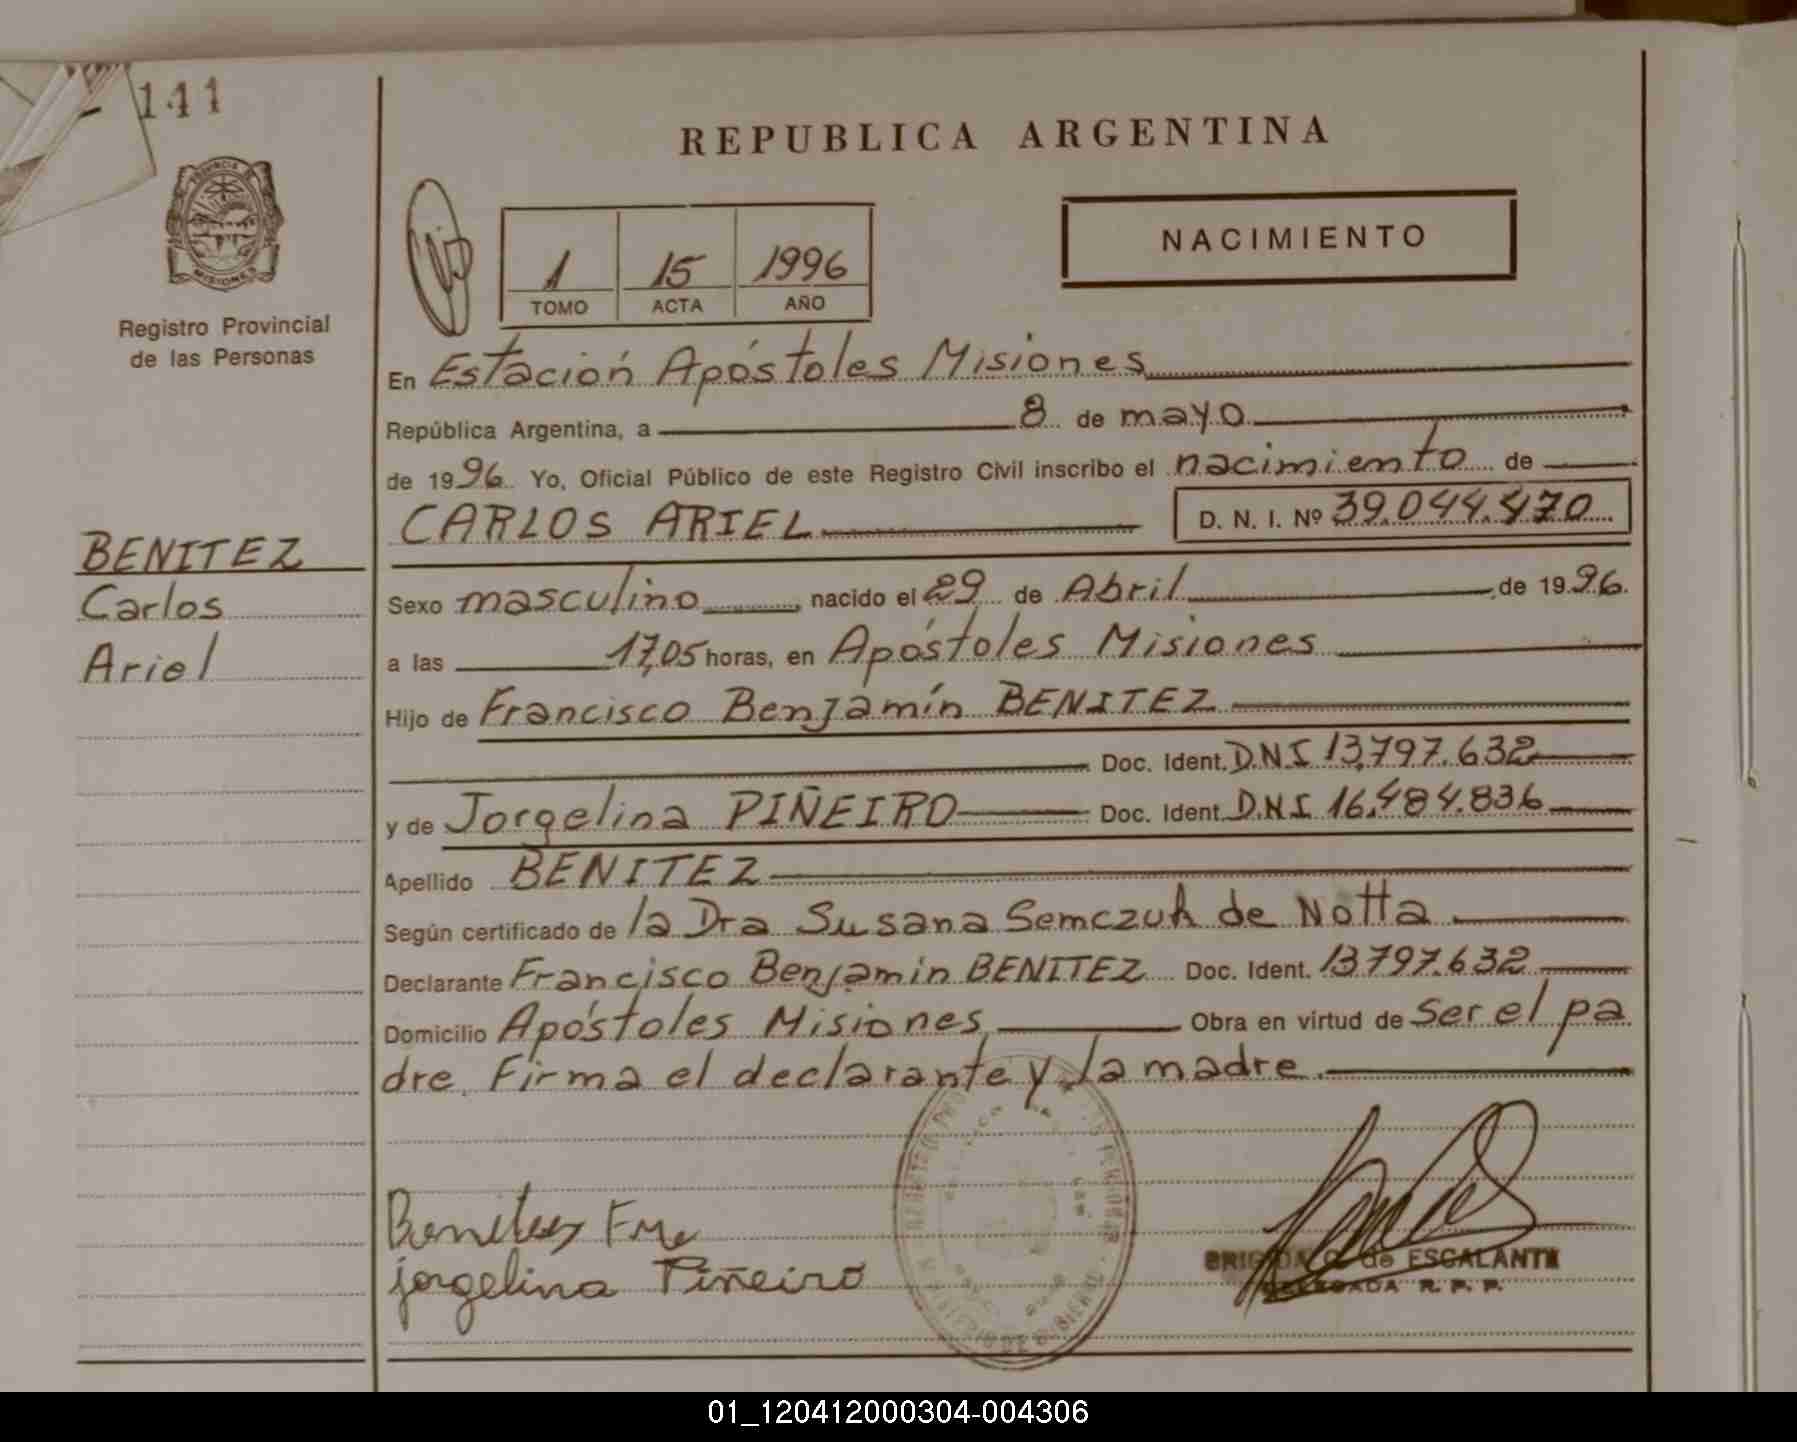 141
PROVINCIA DE
MISIONES
Registro Provincial
de las Personas
BENITEZ
Carlos
Ariel
REPUBLICA ARGENTINA
1 15 1996
TOMO ACTA AÑO
NACIMIENTO
En Estación Apóstoles Misiones
República Argentina, a 8 de mayo
de 1996 Yo, Oficial Público de este Registro Civil inscribo el nacimiento de
CARLOS ARIEL D. N. I. Nº 39.044.470
Sexo masculino nacido el 29 de Abril de 1996.
a las 17,05 horas, en Apóstoles Misiones
Hijo de Francisco Benjamín BENITEZ
Doc. Ident. DNI 13,797.632
y de Jorgelina PIÑEIRO Doc. Ident. D.N.I. 16.484.836
Apellido BENITEZ
Según certificado de la Dra Susana Semczuk de Notta
Declarante Francisco Benjamin BENITEZ Doc. Ident. 13797.632
Domicilio Apóstoles Misiones Obra en virtud de ser el pa
dre. Firma el declarante y la madre.
Benitez
jorgelina Piñeiro
de ESCALANTE
R. P. P.
01_120412000304-004306